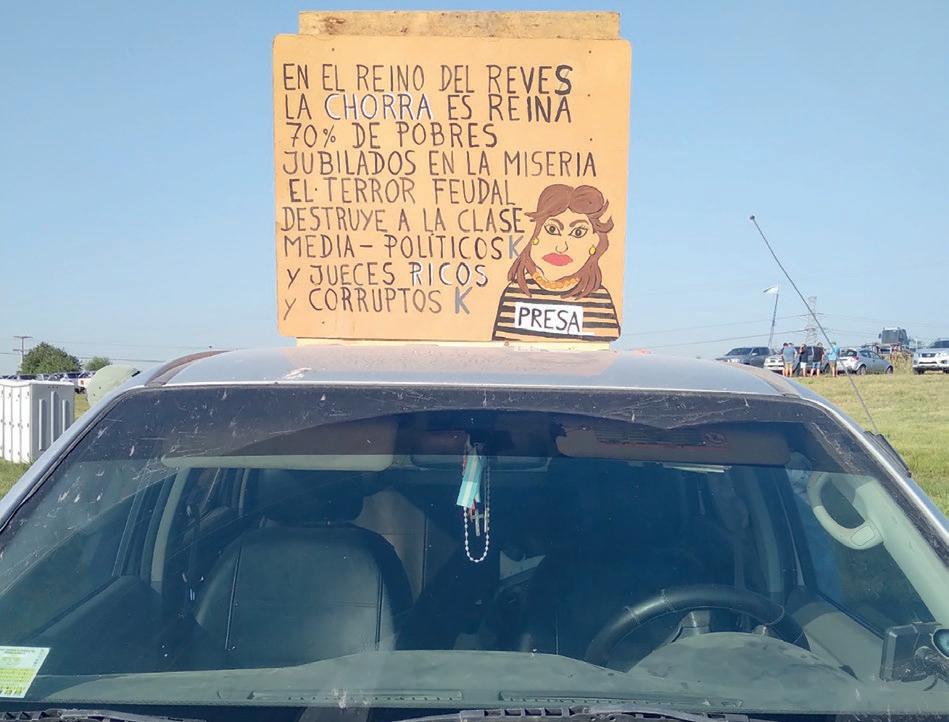 EN EL REINO DEL REVES
LA CHORRA ES REINA
70% DE POBRES
JUBILADOS EN LA MISERIA
EL TERROR FEUDAL
DESTRUYE A LA CLASE
MEDIA - POLÍTICOS K
y JUECES RICOS
y CORRUPTOS K
PRESA